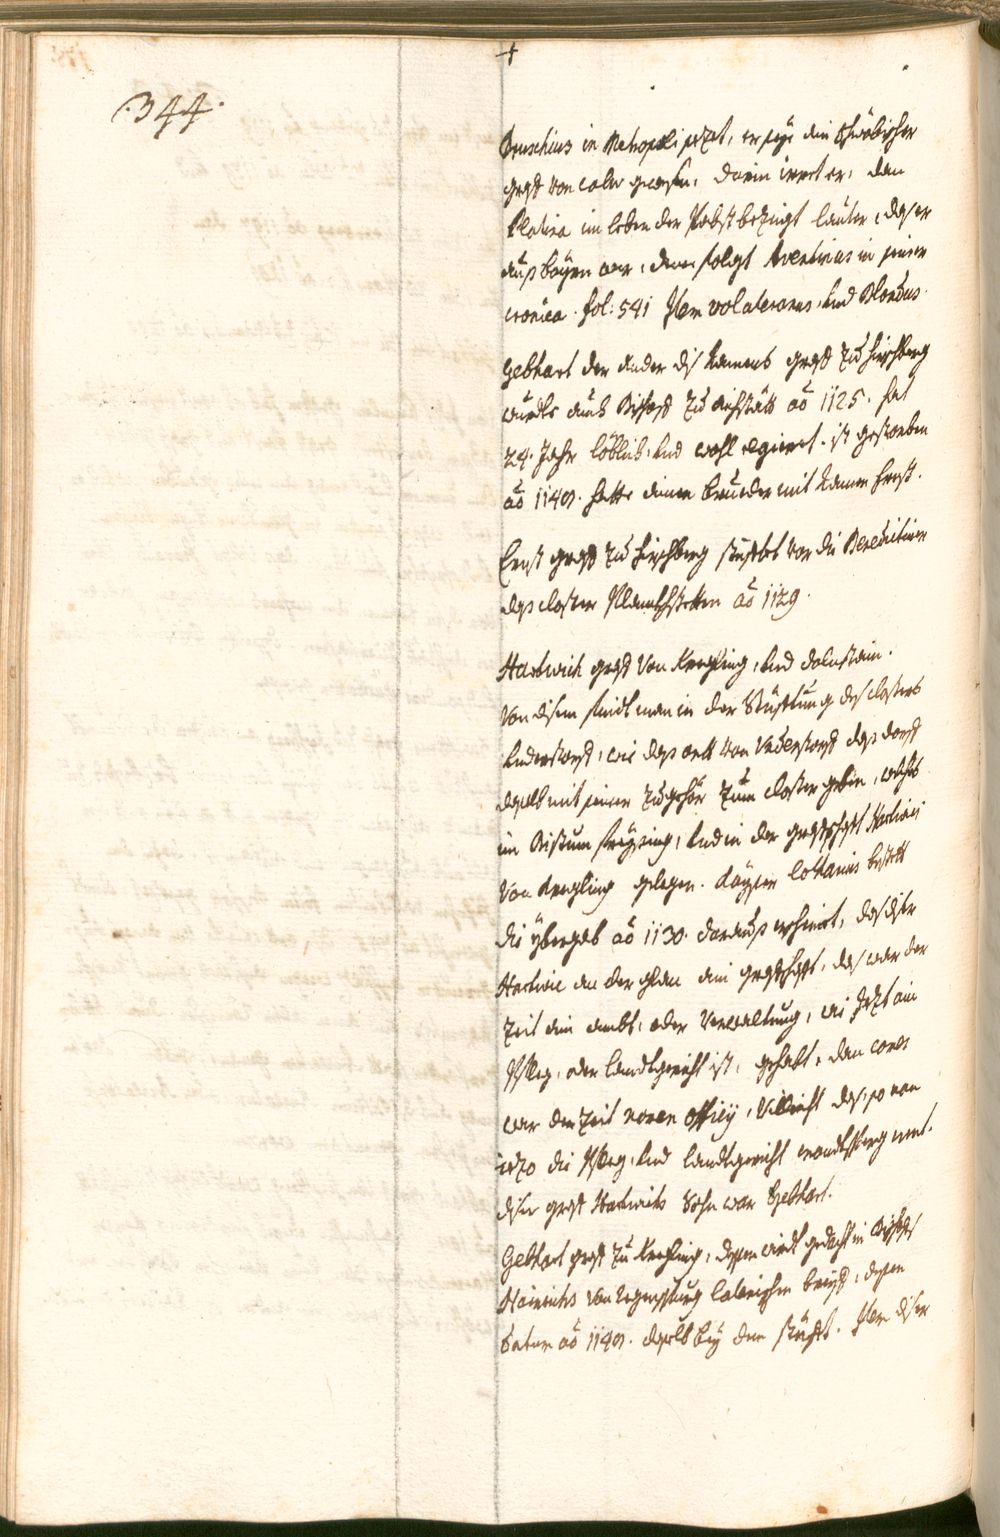 +
.344.
Bruschius in Metropoli sezt, er sye ein schwäbischer
graff von calw gewesen, darin irret er, dan
Platina im leben der Päbst bezeugt lauter, das er
auß bayrn war, dem folgt Aventinus in seiner
cronica. fol: 541 Item volateranus, und Blondus.
Gebhart der ander diß namens graff zu hirschberg
wurde auch Bischoff zu aichstätt ao 1125. hat
24. Jahr löblich, und wohl regiert. ist gestorben
ao 1149. hatte einen bruder mit namen Ernst.
Ernst graff zu hirschberg stüfftet vor die Benedictiner
das closter Planckhstetten ao 1129.
Hartwich graff von Kregling, und dolnstain.
von disem findt man in der Stüfftung des closters
Understorff, wie das ortt von Understorff das dorff
daselbs mit seiner zugehör zum closter geben, welches
im Bistum freysing, und in der graffschafft Hartwici
von Kregling gelegen. Kayser lotharius bestett
die ybergab ao 1130. darauß erscheint, das diser
Hartwic an der glan ein graffschafft, das war der
zeit ein ambt, oder verwaltung, wie jezt ain
Pfleg, oder landtgericht ist, gehabt, dan comes
war der zeit nomen officij, villeicht das, so man
iezo die Pfleg, und landtgericht nent.
diser graff Hartwichs Sohn war Gebhart.
Gebhart graff zu Kregling, dessen wirdt gedacht in Bischoffs
Hainrichs von regenspurg lateinischen brieff, dessen
datum ao 1149. daselbs bey dem stüfft. Item diser